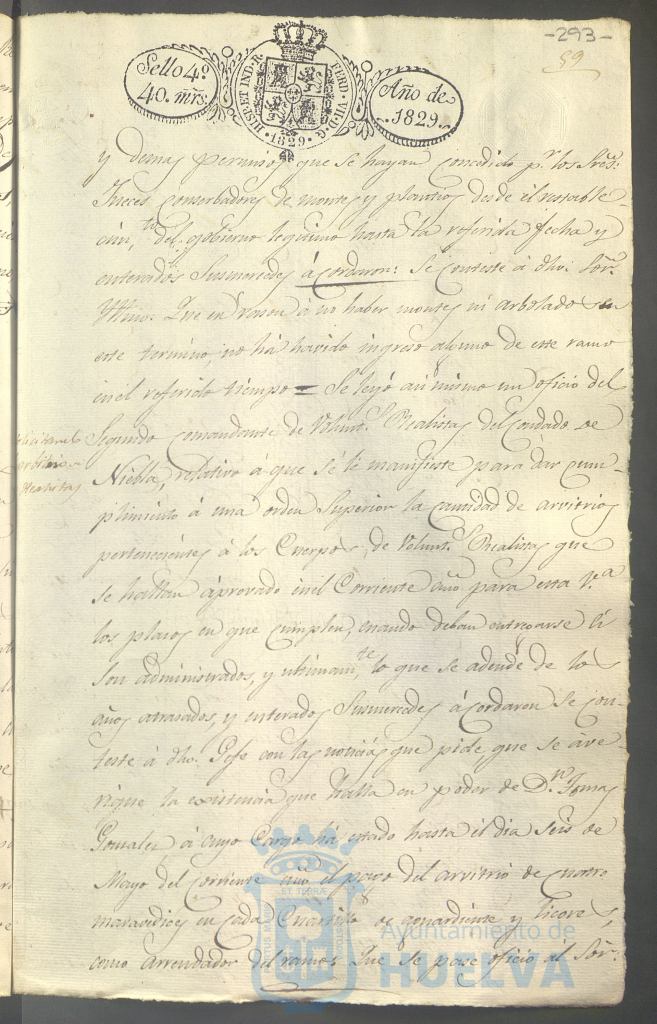 -293-
59
Sello 4º
40. mrs.
HISP. ET IND. R.
FERD. VII. D. G.
·1829·
Año de
1829.
y demas permisos que se hayan concedido pr. los Sres.
Jueces conserbadores de montes y plantios desde el restable-
cim.to del gobierno legitimo hasta la referida fecha y
enterados Susmercedes ácordaron: Se conteste á dho. Sor.
Que en rason á no haber montes ni arbolados en
este termino, no há havido ingreso alguno de este ramo
en el referido tiempo = Se leyó asi mismo un oficio del
Segundo comandante de Volunt.s Realistas del Condado de
Niebla, relativo á que se le manifieste para dar cum-
plimiento á una orden Superior la cantidad de arvitrios
pertenecientes á los Cuerpos de Volunt.s Realistas que
se hallan áprovado en el Corriente año para esta V.a
los plazos en que cumplen, cuando deban entregarse ú
son administrados, y ultimam.te lo que se adeude de los
años atrasados, y enterados Susmercedes ácordaron se con-
teste á dho. Gefe con las noticias que pide que se ave-
rigue la existencia que halla en poder de D.n Tomas
Gonzalez á cuyo cargo há estado hasta el dia seis de
Mayo del corriente año el pago del arvitrio de cuatro
maravedices en cada Cuartillo de aguardiente y licores,
como Arrendador del ramo= Que se pase oficio al Sor.
arbitrios
Realistas
Ayuntamiento de
HUELVA